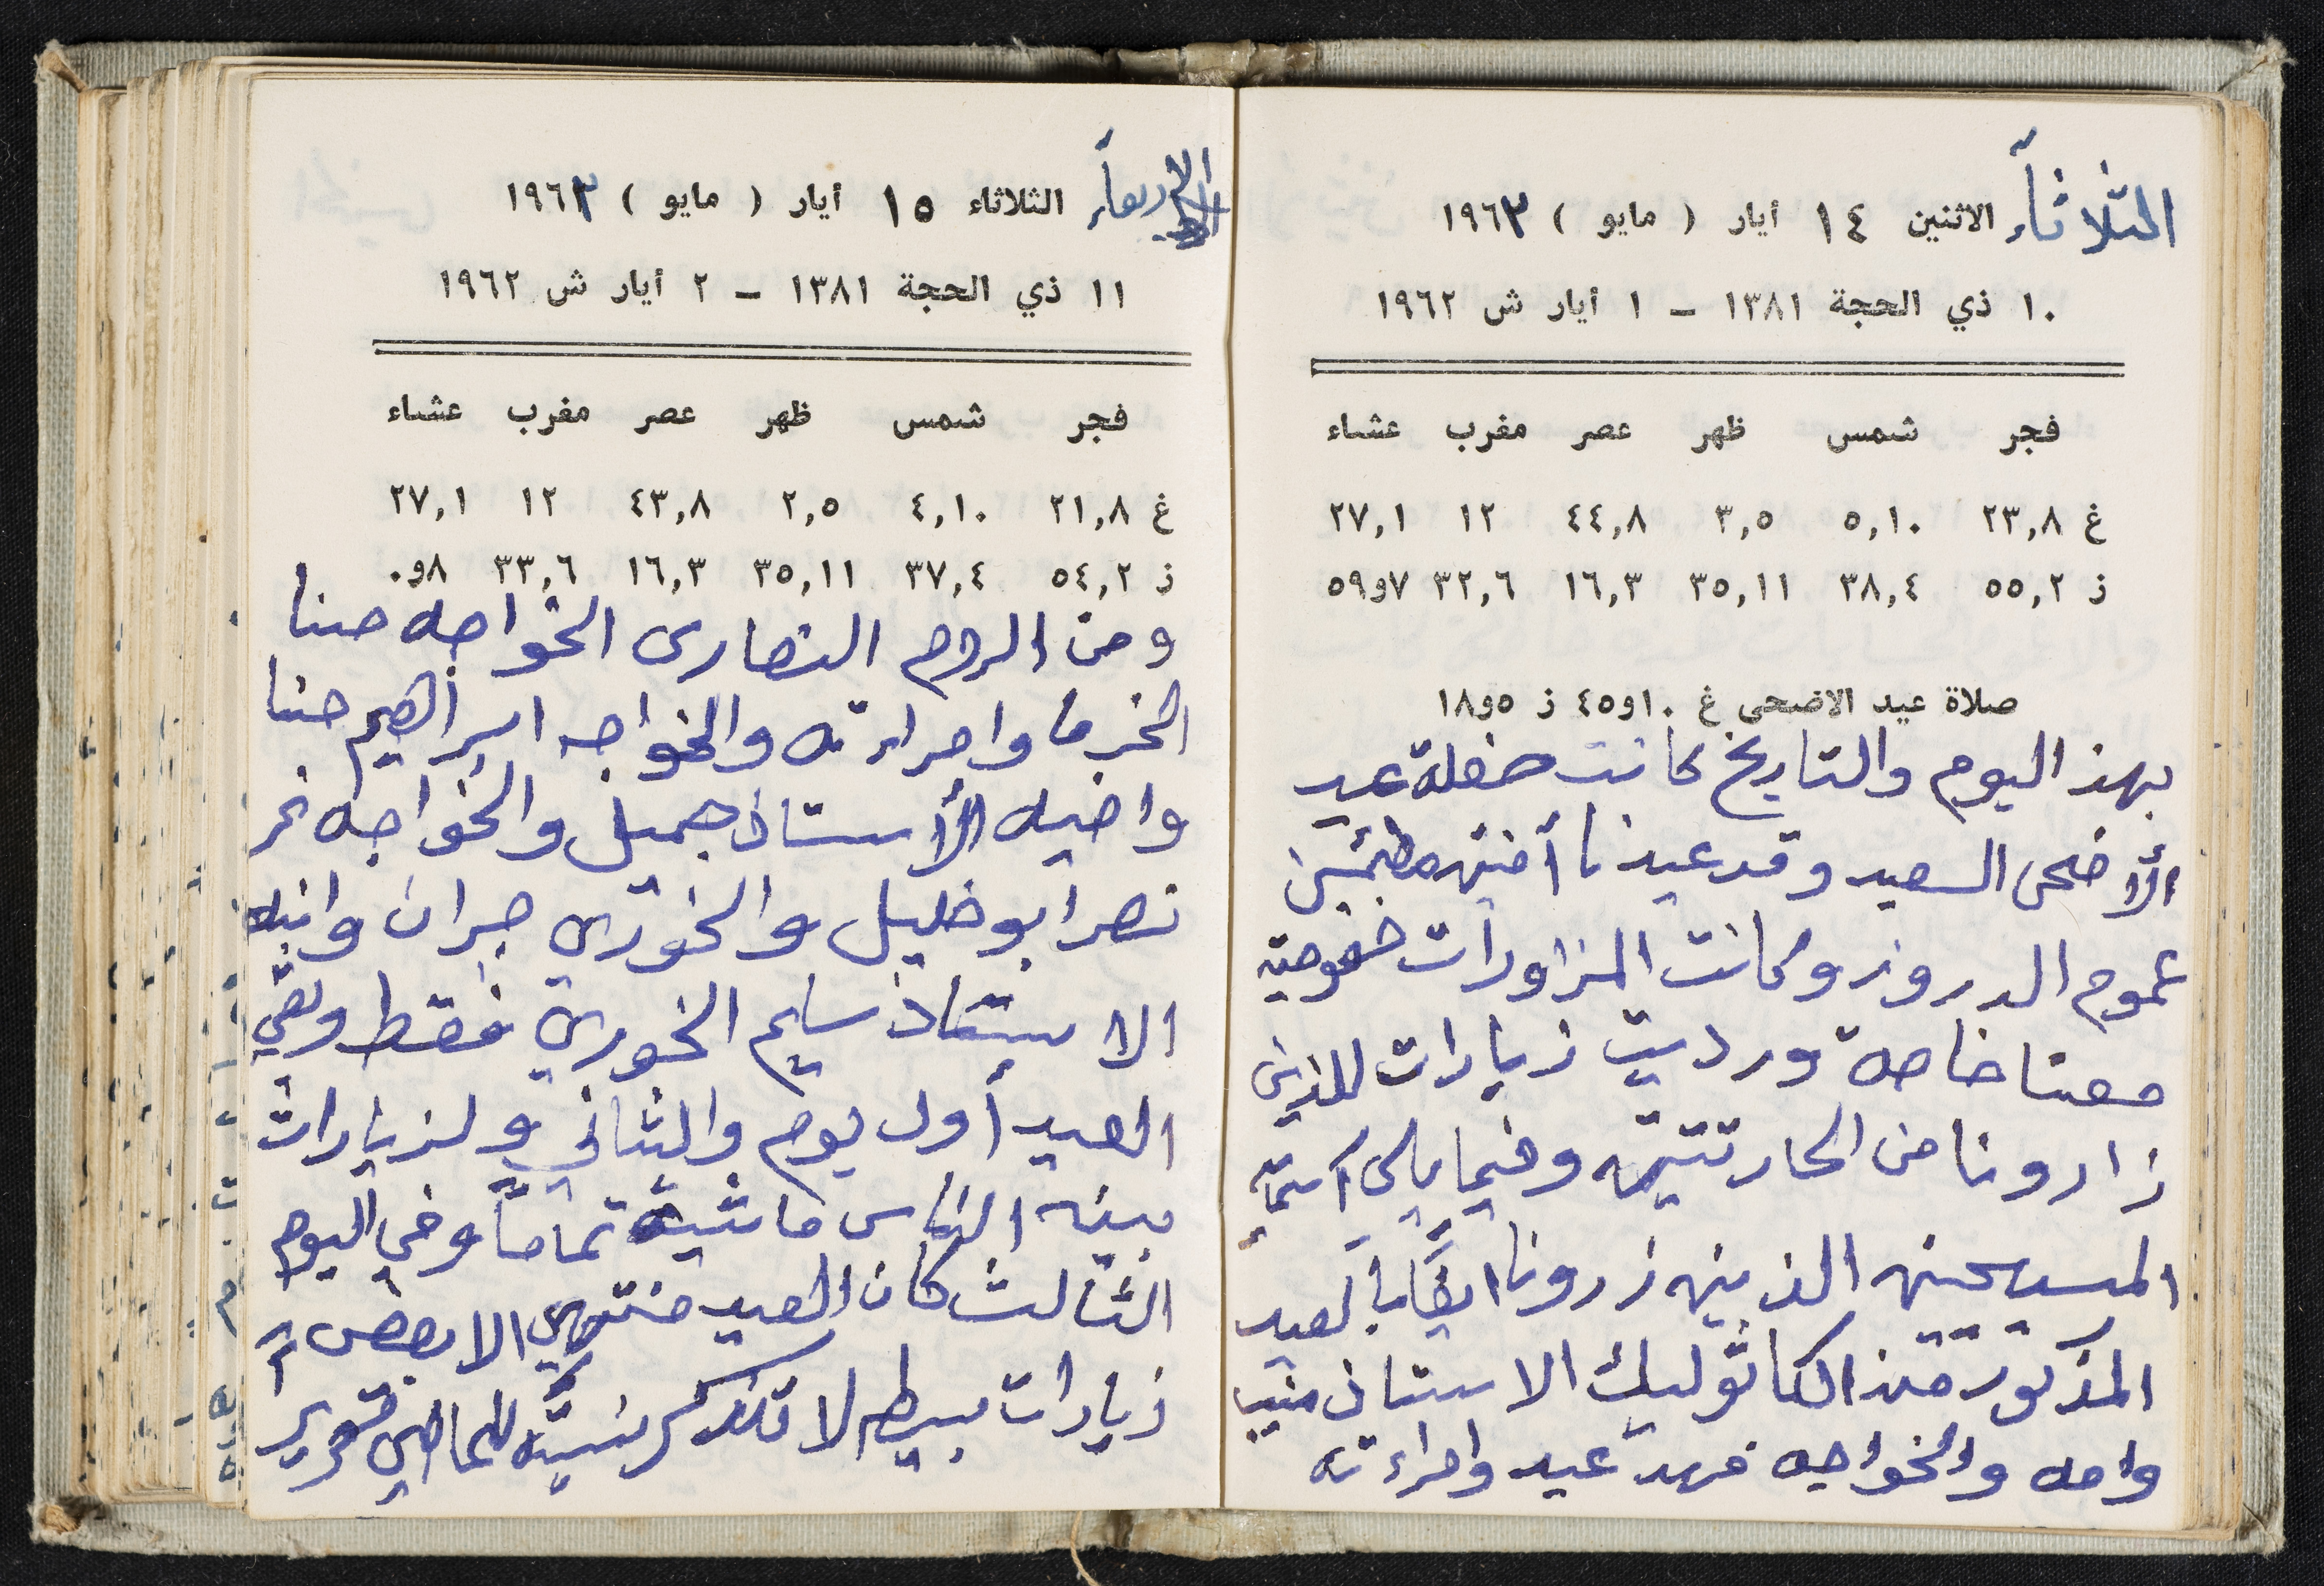 الثلاثاء الاثنين ١٤ أيار ( مايو ) ١٩٦٣
١٠ ذي الحجة ١٣٨١ - ١ أيار ش ١٩٦٢
فجر شمس ظهر عصر مغرب عشاء
غ ٢٣,٨ ٥,١٠ ٣,٥ ٤٤,٨ ١٢ ٢٧,١
ز ٥٥,٢ ٣٨,٤ ٣٥,١١ ١٦,٣ ٣٢,٦ ٧و٥٩
صلاة عيد الاضحى غ ١٠و٤٥ ز ٥و١٨
بهذ اليوم والتاريخ كانت حفلة عيد
الأضحى السعيد وقد عيدنا أمنين مطمئنين
عموم الدروز وكانت المزاورات خصوصية
معنا خاصة ورديت زيارات للذين
زارونا من الحارتتين وفيما يلي اسماء
المسيحين الذين زرونا ايضًا بالعيد
المذكور من الكاثوليك الاستاذ منيب
وامه والخواجه فهد عيد وامراءته
الاربعاء الثلاثاء ١٥ أيار ( مايو ) ١٩٦٣
١١ ذي الحجة ١٣٨١ - ٢ أيار ش ١٩٦٢
فجر شمس ظهر عصر مغرب عشاء
غ ٢١,٨ ٤,١٠ ٢,٥ ٤٣,٨ ١٢ ٢٧,١
ز ٥٤,٢ ٣٧,٤ ٣٥,١١ ١٦,٣ ٣٣,٦ ٨و٠
ومن الروم النصارى الخواجه حنا
الخرما وامراءته والخواجه ابراهيم حنا
واخيه الأستاذ جميل والخواجه نمر
نصر ابو خليل والخوري جبران وابنه
الاستاذ سليم الخوري فقط وبقي
العيد أول يوم والثاني ولزيارات
بين الناس ماشية تمامًا وفي اليوم
الثالث كان العيد منتهي الا بعض
زيارات بسيطه لا تذكر نسبة للماضي